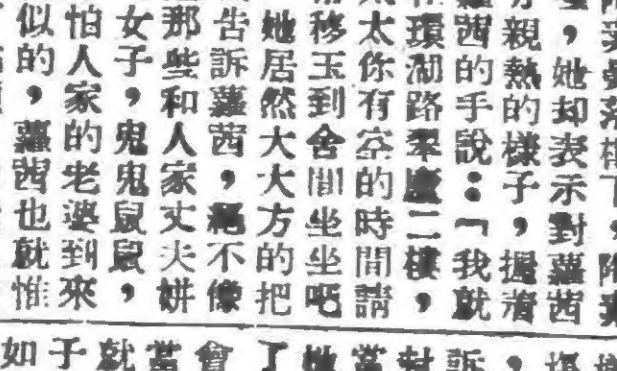 ，她却表示對蘿茜
親熱的樣子，握着
茜的手說：「我就
環湖路翠廬二樓，
太你有空的時間請
移玉到舍間坐坐吧
她居然大大方的把
告訴蘿茜，絕不像
那些和人家丈夫姘
女子，鬼鬼鼠鼠，
怕人家的老婆到來
似的，蘿茜也就惟
訴
對
當
她
了
會
當
就
子
如